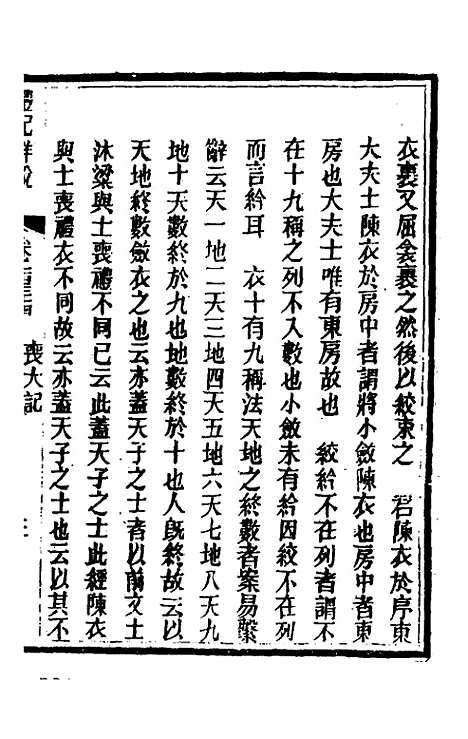 衣裹又屈衾裹之然後以絞束之　君陳衣於序東
大夫士陳衣於房中者謂將小斂陳衣也房中者東
房也大夫士唯有東房故也　絞紟不在列者謂不
在十九稱之列不入數也小斂未有紟因絞不在列
而言紟耳　衣十有九稱法天地之終數者案易繫
辭云天一地二天三地四天五地六天七地八天九
地十天數終於九也地數終於十也人旣終故云以
天地終數斂衣之也云亦蓋天子之士者以前文士
沐粱與士喪禮不同已云此蓋天子之士此經陳衣
與士喪禮衣不同故云亦蓋天子之士也云以其不
禮記詳說　卷　喪大記